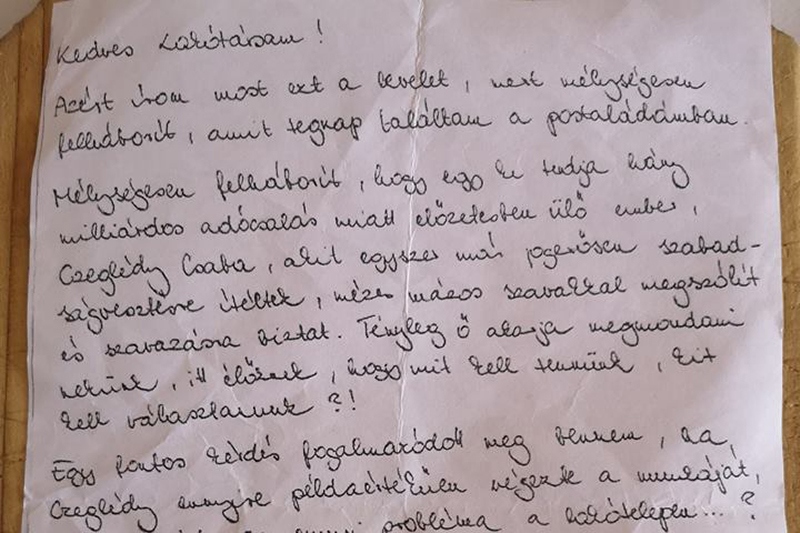 Kedves Lakótársam!
Azért írom most ezt a levelet, mert mélységesen
felháborít, amit tegnap találtam a postaládámban.
Mélységesen felháborít, hogy egy ki tudja hány
milliárdos adócsalás miatt előzetesben ülő ember,
Czeglédy Csaba, akit egyszer már jogerősen szabad-
ságvesztésre ítéltek, mézes mázos szavakkal megszólít
és szavazásra biztat. Tényleg ő akarja megmondani
nekünk, itt élőknek, hogy mit kell tennünk, kit
kell választanunk?!
Egy fontos kérdés fogalmazódott meg bennem, ha
Czeglédy ennyire példaértékűen végezte a munkáját,
probléma a lakótelepen...?